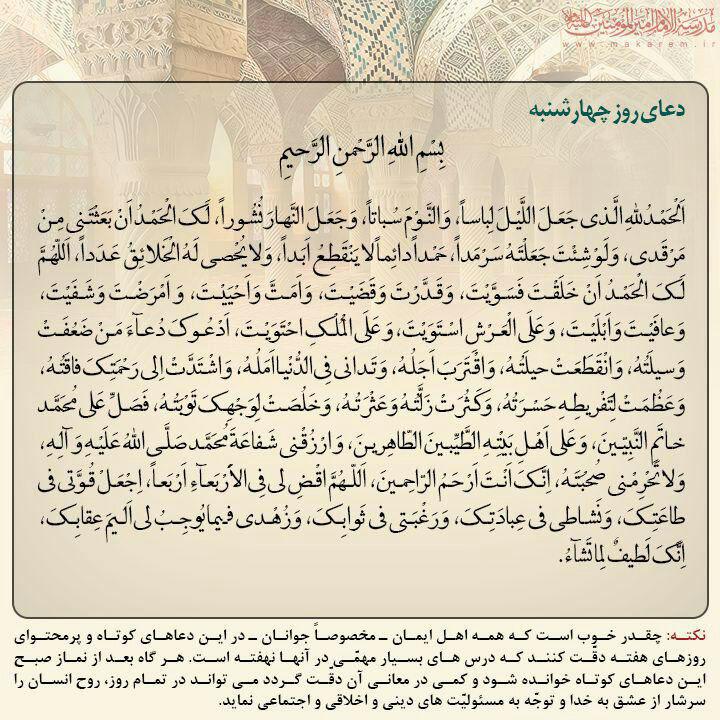 مدرسة الامام امیرالمؤمنین علیه السلام
www.makarem.ir
دعای روز چهارشنبه
بِسْمِ اللهِ الرَّحْمنِ الرَّحیمِ
اَلْحَمْدُ لِلهِ الَّذی جَعَلَ اللَّیْلَ لِباساً، وَالنَّوْمَ سُباتاً، وَجَعَلَ النَّهارَ نُشُوراً، لَکَ الْحَمْدُ اَنْ بَعَثْتَنی مِنْ
مَرْقَدی، وَلَوْ شِئْتَ جَعَلْتَهُ سَرْمَداً، حَمْداً دائِماً لا یَنْقَطِعُ اَبَداً، وَلا یُحْصی لَهُ الْخَلائِقُ عَدَداً، اَللّهُمَّ
لَکَ الْحَمْدُ اَنْ خَلَقْتَ فَسَوَّیْتَ، وَقَدَّرْتَ وَقَضَیْتَ، وَاَمَتَّ وَاَحْیَیْتَ، وَاَمْرَضْتَ وَشَفَیْتَ،
وَعافَیْتَ وَاَبْلَیْتَ، وَعَلَی الْعَرْشِ اسْتَوَیْتَ، وَعَلَی الْمُلْکِ احْتَوَیْتَ، اَدْعُوکَ دُعآءَ مَنْ ضَعُفَتْ
وَسیلَتُهُ، وَانْقَطَعَتْ حیلَتُهُ، وَاقْتَرَبَ اَجَلُهُ، وَتَدانی فِی الدُّنْیا اَمَلُهُ، وَاشْتَدَّتْ اِلی رَحْمَتِکَ فاقَتُهُ،
وَعَظُمَتْ لِتَفْریطِهِ حَسْرَتُهُ، وَکَثُرَتْ زَلَّتُهُ وَعَثْرَتُهُ، وَخَلُصَتْ لِوَجْهِکَ تَوْبَتُهُ، فَصَلِّ عَلی مُحَمَّد
خاتَمِ النَّبِیّینَ، وَعَلی اَهْلِ بَیْتِهِ الطَّیِّبینَ الطّاهِرینَ، وَارْزُقْنی شَفاعَةَ مُحَمَّد صَلَّی اللهُ عَلَیْهِ وَآلِهِ،
وَلا تَحْرِمْنی صُحْبَتَهُ، اِنَّکَ اَنْتَ اَرْحَمُ الرّاحِمینَ، اَللّهُمَّ اقْضِ لی فِی الاَْرْبَعآءِ اَرْبَعاً، اِجْعَلْ قُوَّتی فی
طاعَتِکَ، وَنَشاطی فی عِبادَتِکَ، وَرَغْبَتی فی ثَوابِکَ، وَزُهْدی فیما یُوجِبُ لی اَلیمَ عِقابِکَ،
اِنَّکَ لَطیفٌ لِما تَشآءُ.
نکته: چقدر خوب است که همه اهل ایمان ـ مخصوصاً جوانان ـ در این دعاهای کوتاه و پرمحتوای
روزهای هفته دقّت کنند که درس های بسیار مهمّی در آنها نهفته است. هر گاه بعد از نماز صبح
این دعاهای کوتاه خوانده شود و کمی در معانی آن دقّت گردد می تواند در تمام روز، روح انسان را
سرشار از عشق به خدا و توجّه به مسئولیّت های دینی و اخلاقی و اجتماعی نماید.